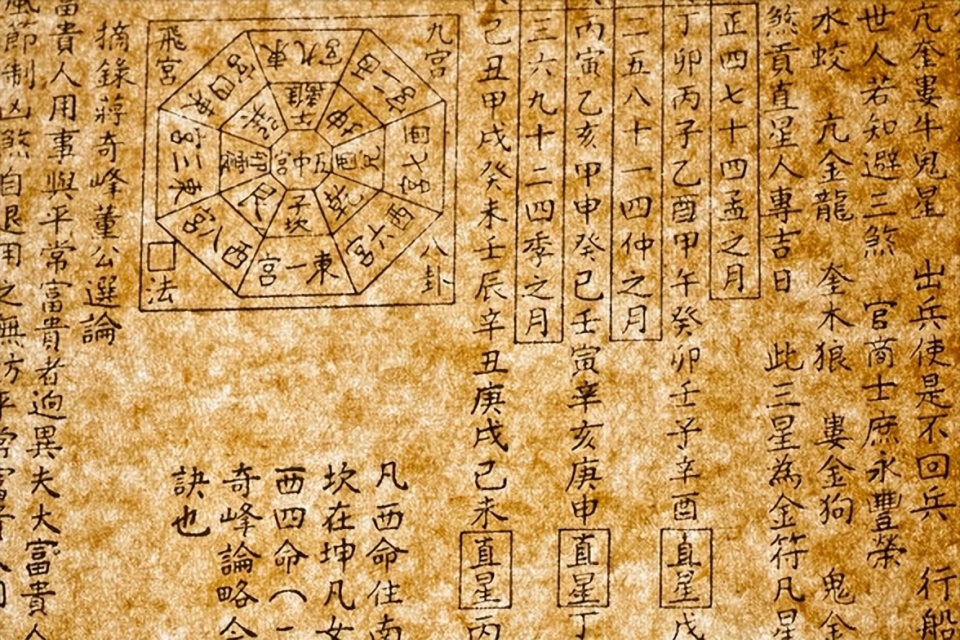 亢奎婁牛鬼星　出兵使是不回兵　行船
世人若知避三煞　官商士庶永豐榮
水蛟　亢金龍　奎木狼　婁金狗　鬼金
煞貢直星人專吉日　此三星為金符凡星
正四七十四孟之月
丁卯丙子乙酉甲午癸卯壬子辛酉直星戊
二五八十一四仲之月
丙寅乙亥甲申癸巳壬寅辛亥庚申直星丁
三六九十二四季之月
己丑甲戌癸未壬辰辛丑庚戌己未直星丙
九宮
八卦
飛宮
□法
中宮五
子坎
東一宮
乾
西六宮
兌
西七宮
東九宮
離
東三宮
西八宮
凡西命住南
坎在坤凡女
西四命（一
奇峰論略今
訣也
摘錄蔣奇峰董公選論
富貴人用事與平常富貴者逈異夫大富貴人
風節制凶煞自退用之無方平常富